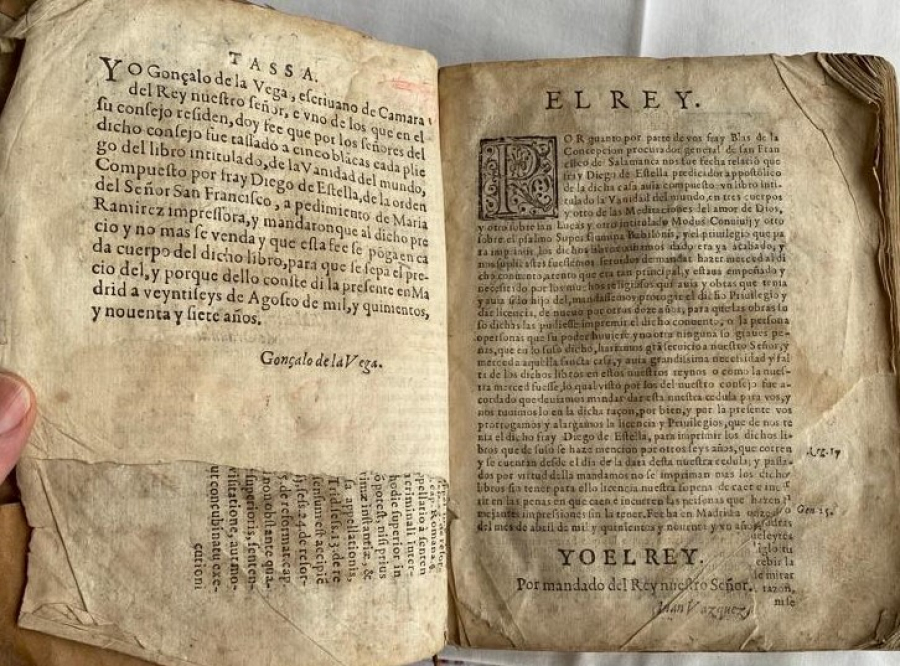 TASSA.
YO Gonçalo de la Vega, escriuano de Camara
del Rey nuestro señor, e vno de los que en el
su consejo residen, doy fee que por los señores del
dicho consejo fue tassado a cinco blãcas cada plie
go del libro intitulado, de la Vanidad del mundo,
Compuesto por fray Diego de Estella, de la orden
del Señor San Francisco, a pedimiento de Maria
Ramirez impressora, y mandaron que al dicho pre
cio y no mas se venda y que esta fee se põga en ca
da cuerpo del dicho libro, para que se sepa el pre-
cio del, y porque dello conste di la presente en Ma
drid a veyntiseys de Agosto de mil, y quinientos,
y nouenta y siete años.
Gonçalo de la Vega.
Romana. 6.
appellatiõ à senten
criminali inter-
hodie superior in
ò potest, nisi prius
rimæ instantiæ, &
sa appellationis,
Trid. sess. 13. de re
sensum est accipiẽ
sess. 24. de refor-
5. de reformat. cap
non obstante qua-
superioris, senten-
visitatione, aut mo-
ut concubinatu exe-
cutioni
EL REY.
POR quanto por parte de vos fray Blas de la
Concepcion procurador general de san Fran
cisco de Salamanca nos fue fecha relaciõ que
fray Diego de Estella predicador appostolico
de la dicha casa auia compuesto vn libro inti-
tulado la Vanidad del mundo, en tres cuerpos
y otro de las Meditaciones del amor de Dios,
y otro sobre san Lucas y otro intitulado Modus Conciuij y otro
sobre el psalmo Super flumina Babilonis, y el priuilegio que pa
ra imprimir los dichos libros auiamos dado era ya acabado, y
nos suplicastes fuessemos seruidos de mandar hazer merced al di
cho conuento, atento que era tan principal, y estaua empeñado y
necesitado por los muchos religiosos que auia y obras que tenia
y auia sido hijo del, mandassemos prorogar el dicho Priuilegio y
dar licencia, de nueuo por otros doze años, para que las obras su
so dichas las pudiesse impremir el dicho conuento, o la persona
o personas que su poder huuiere y no otra ninguna so graues pe-
nas, que en lo suso dicho, hariamos grã seruicio a nuestro Señor, y
merced a aquella sancta casa, y auia grandissima necesidad y fal
ta de los dichos libros en estos nuestros reynos o como la nues-
tra merced fuesse, lo qual visto por los del nuestro consejo fue a-
cordado que deuiamos mandar dar esta nuestra cedula para vos, y
nos tuuimos lo en la dicha raçon, por bien, y por la presente vos
prorrogamos y alargamos la licencia y Priuilegios, que de nos te
nia el dicho fray Diego de Estella, para imprimir los dichos li-
bros que de suso se haze mencion por otros seys años, que corren
y se cuentan desde el dia de la data desta nuestra cedula; y passa-
dos por virtud della mandamos no se impriman mas los dichos
libros sin tener para ello licencia nuestra so pena de caer e incu
rir en las penas en que caen e incurren las personas que hazen
mejantes impressiones sin la tener. Fecha en Madrid a onze
del mes de abril de mil y quinientos y nouenta y vn años
YO EL REY.
Por mandado del Rey nuestro Señor.
Iuan Vazquez.
Gen 25.
siglo tu
cebir la
se mirar
razon,
ni se